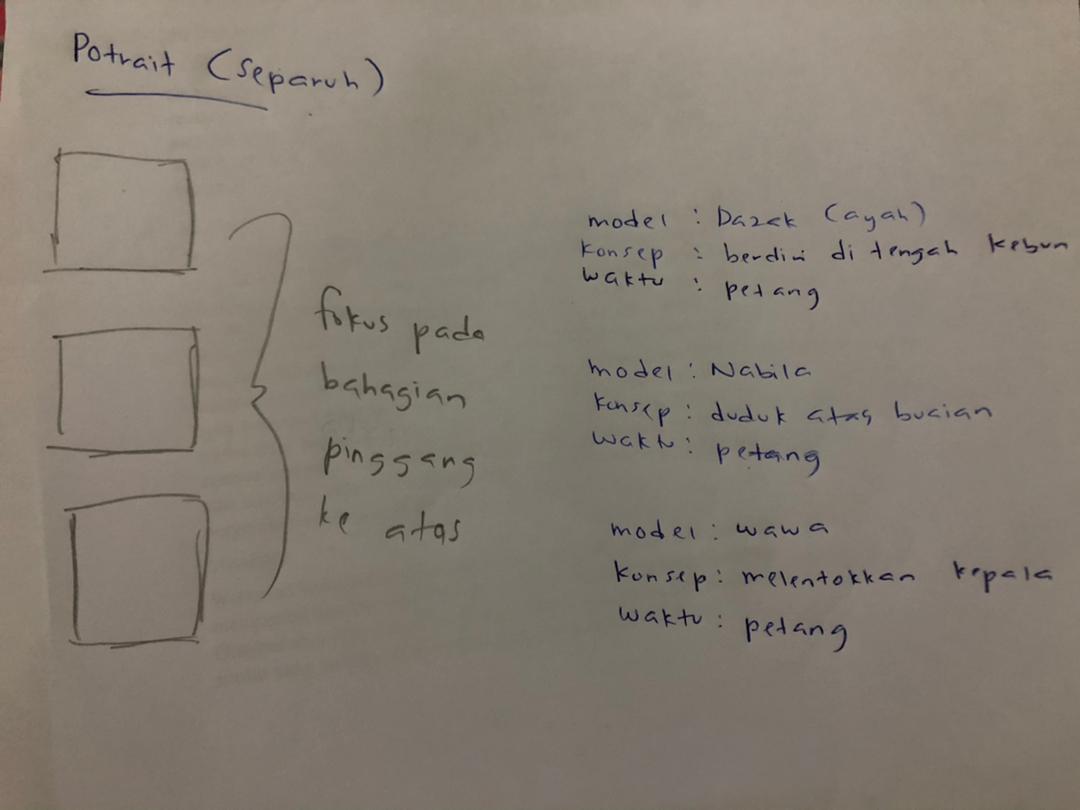 Potrait (separuh)
fokus pada
bahagian
pinggang
ke atas
model : Dazek (ayah)
konsep : berdiri di tengah kebun
waktu : petang
model : Nabila
konsep : duduk atas buaian
waktu : petang
model : wawa
konsep : melentokkan kepala
waktu : petang